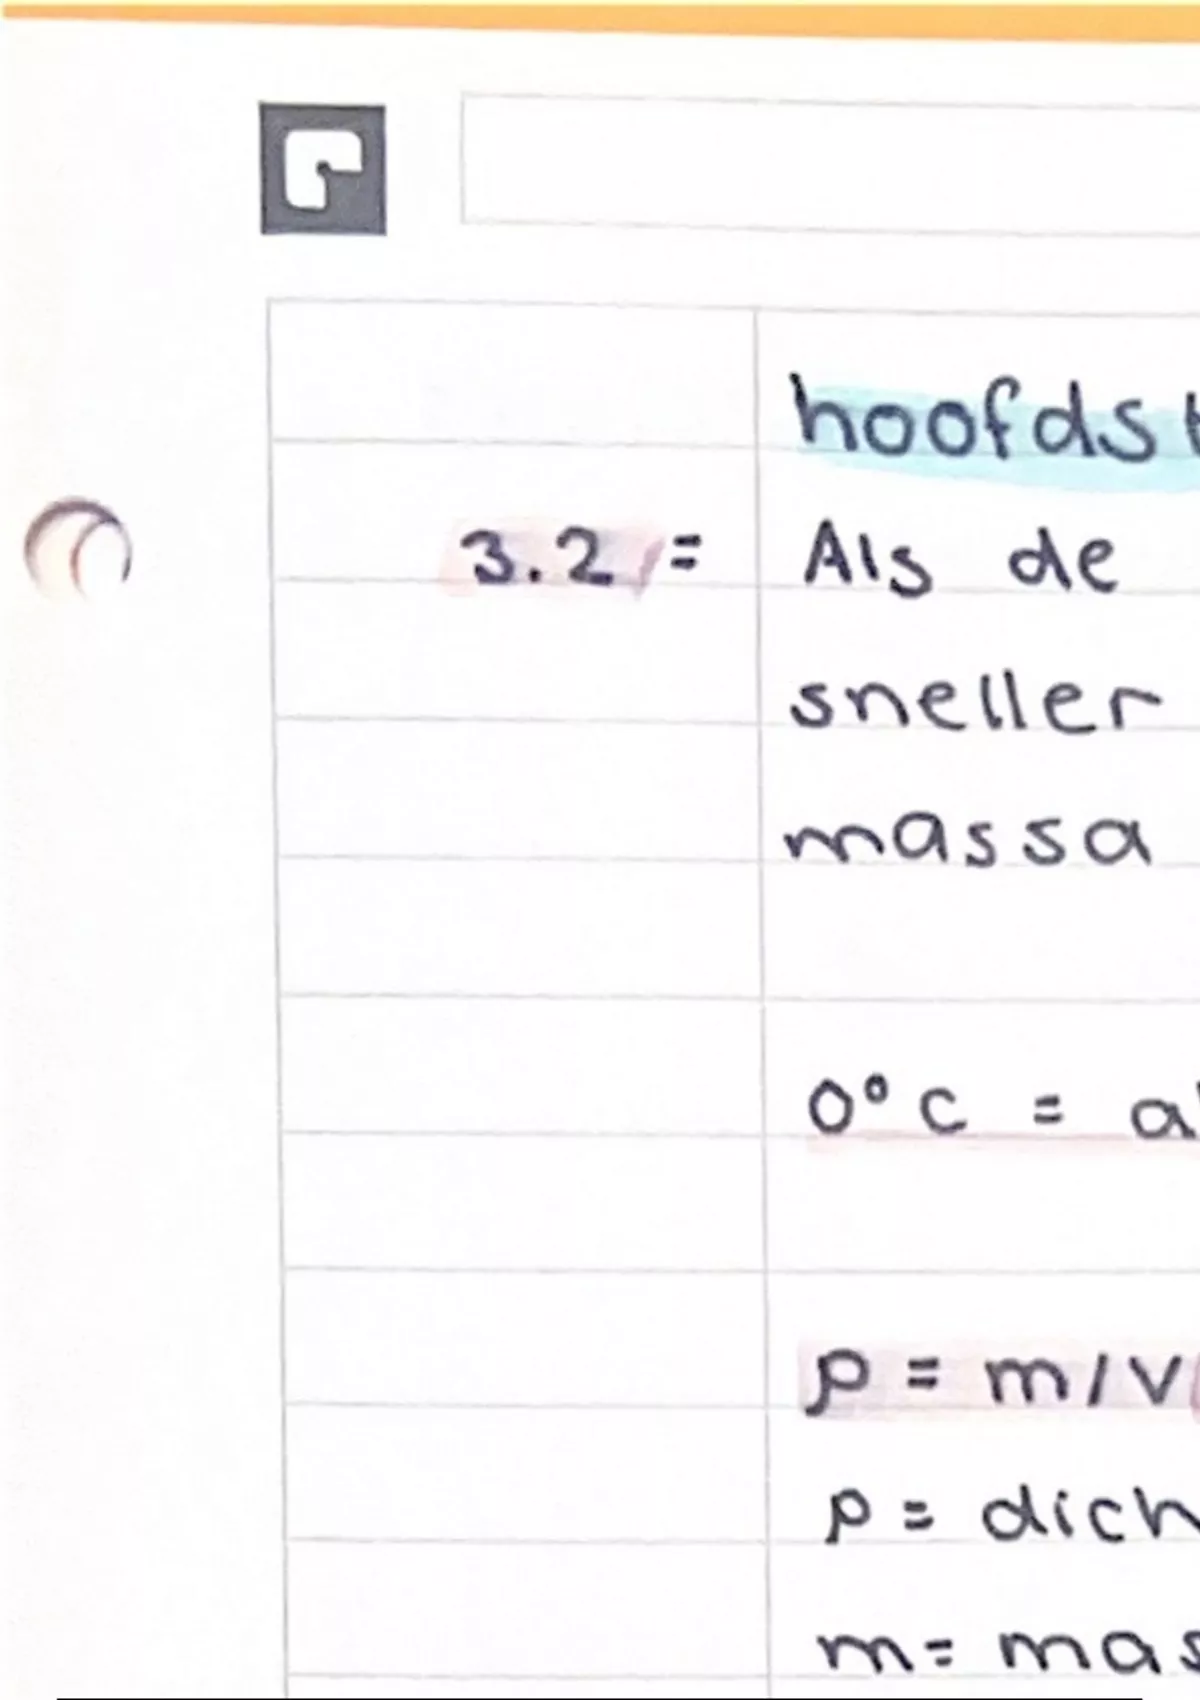 hoofdst
3.2 = Als de
sneller
massa
0°C = al
ρ = m/V
ρ = dich
m = mas